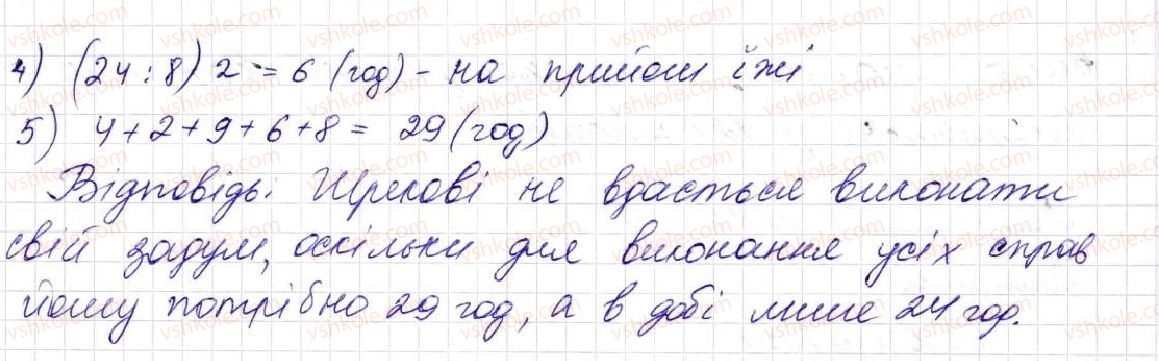 4) (24 : 8) 2 = 6 (год) - на прийом їжі
5) 4 + 2 + 9 + 6 + 8 = 29 (год)
Відповідь: Шрекові не вдасться виконати
свій задум, оскільки для виконання усіх справ
йому потрібно 29 год, а в добі лише 24 год.